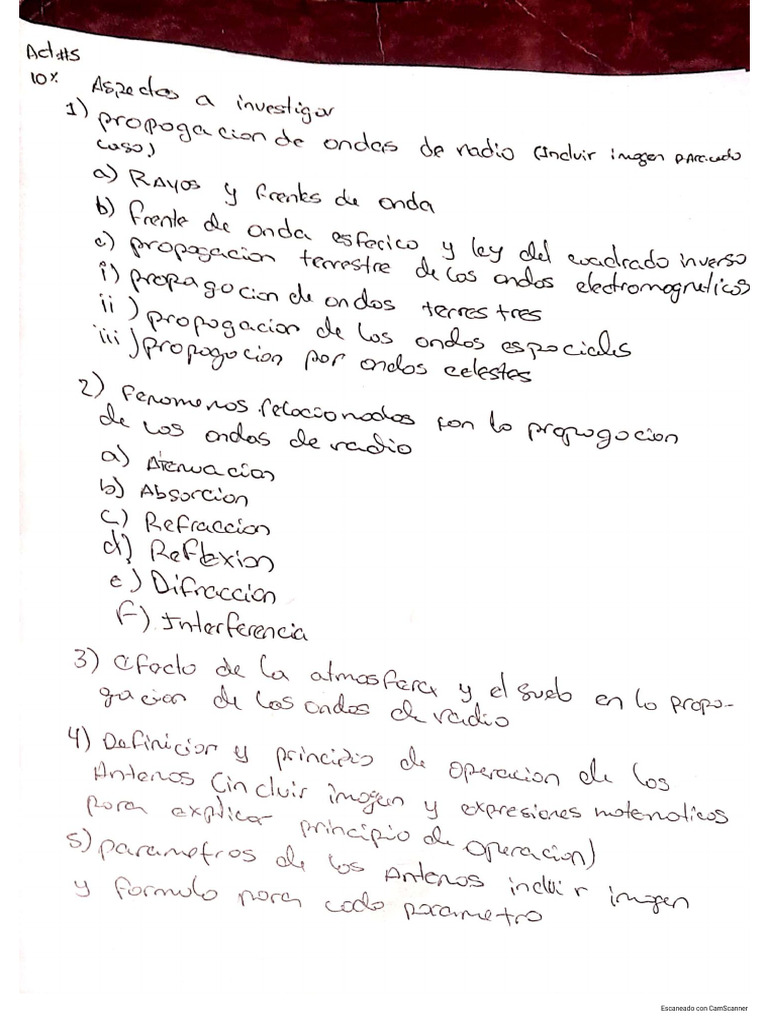 Act#5
10% Aspectos a investigar
1) propagacion de ondas de radio (Incluir imagen para cada
caso)
a) RAyos y frentes de onda
b) frente de onda esferico y ley del cuadrado inverso
c) propagacion terrestre de las ondas electromagneticas
i) propagacion de ondas terrestres
ii) propagacion de las ondas espaciales
iii) propagacion por ondas celestes
2) Fenomenos relacionados con la propagacion
de las ondas de radio
a) Atenuacion
b) Absorcion
c) Refraccion
d) Reflexion
e) Difraccion
F) Interferencia
3) efecto de la atmosfera y el suelo en la propa-
gacion de las ondas de radio
4) Definicion y principio de operacion de las
Antenas (incluir imagen y expresiones matematicas
para explicar principio de operacion)
5) parametros de las Antenas incluir imagen
y formula para cada parametro
Escaneado con CamScanner